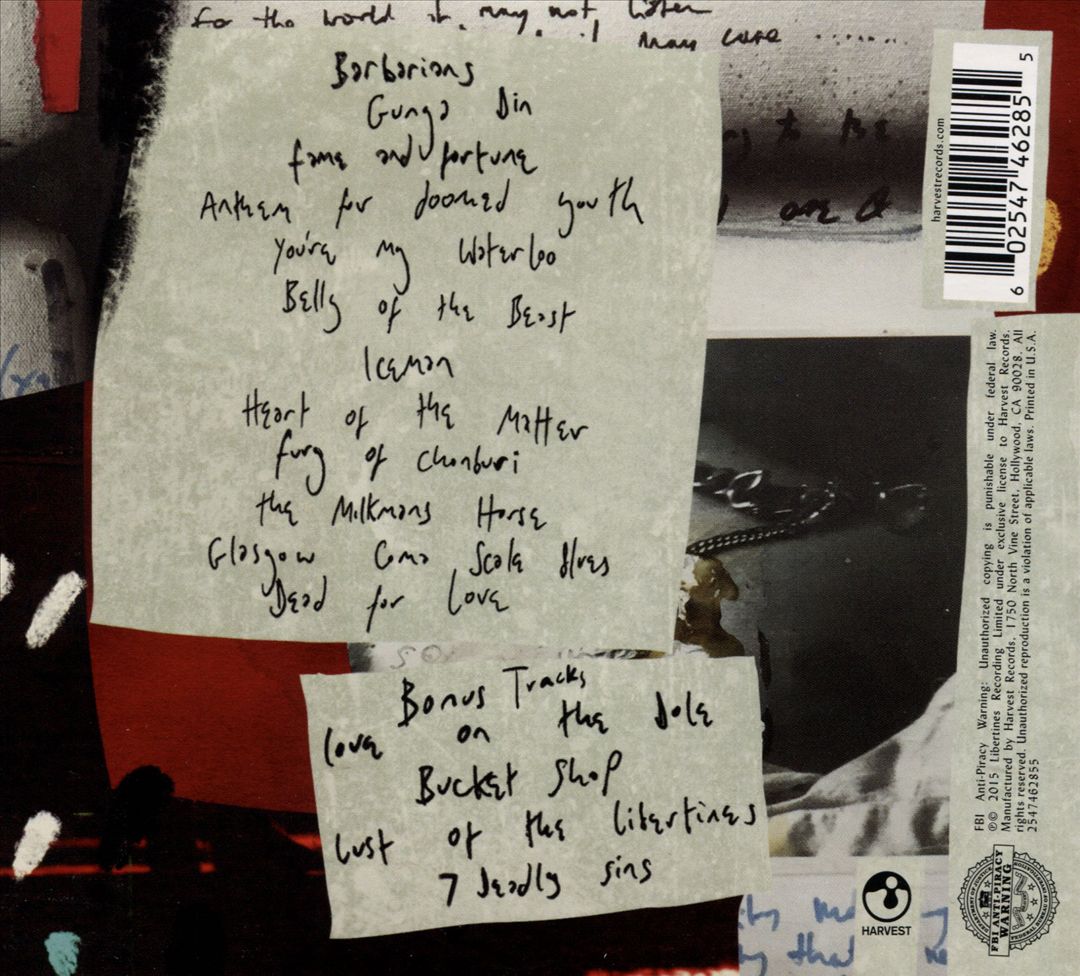 for the world it may not listen
may care ........
Barbarians
Gunga Din
fame and fortune
Anthem for doomed youth
You're my Waterloo
Belly of the Beast
Iceman
Heart of the Matter
fury of chonburi
the Milkmans Horse
Glasgow Coma Scale Blues
Dead for Love
Bonus Tracks
love on the dole
Bucket Shop
lust of the libertines
7 deadly sins
to be
are a
harvestrecords.com
6 02547 46285 5
FBI Anti-Piracy Warning: Unauthorized copying is punishable under federal law.
℗© 2015 Libertines Recording Limited under exclusive license to Harvest Records.
Manufactured by Harvest Records, 1750 North Vine Street, Hollywood, CA 90028. All
rights reserved. Unauthorized reproduction is a violation of applicable laws. Printed in U.S.A.
2547462855
HARVEST
DEPARTMENT OF JUSTICE
FBI ANTI-PIRACY
WARNING
FEDERAL BUREAU OF INVESTIGATION
that